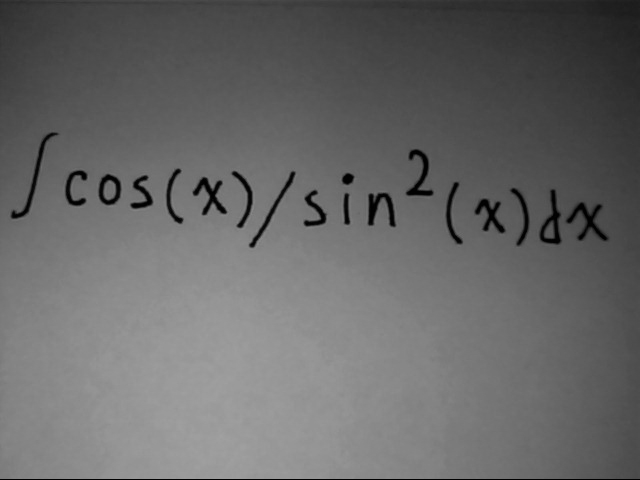 ∫cos(x)/sin²(x)dx